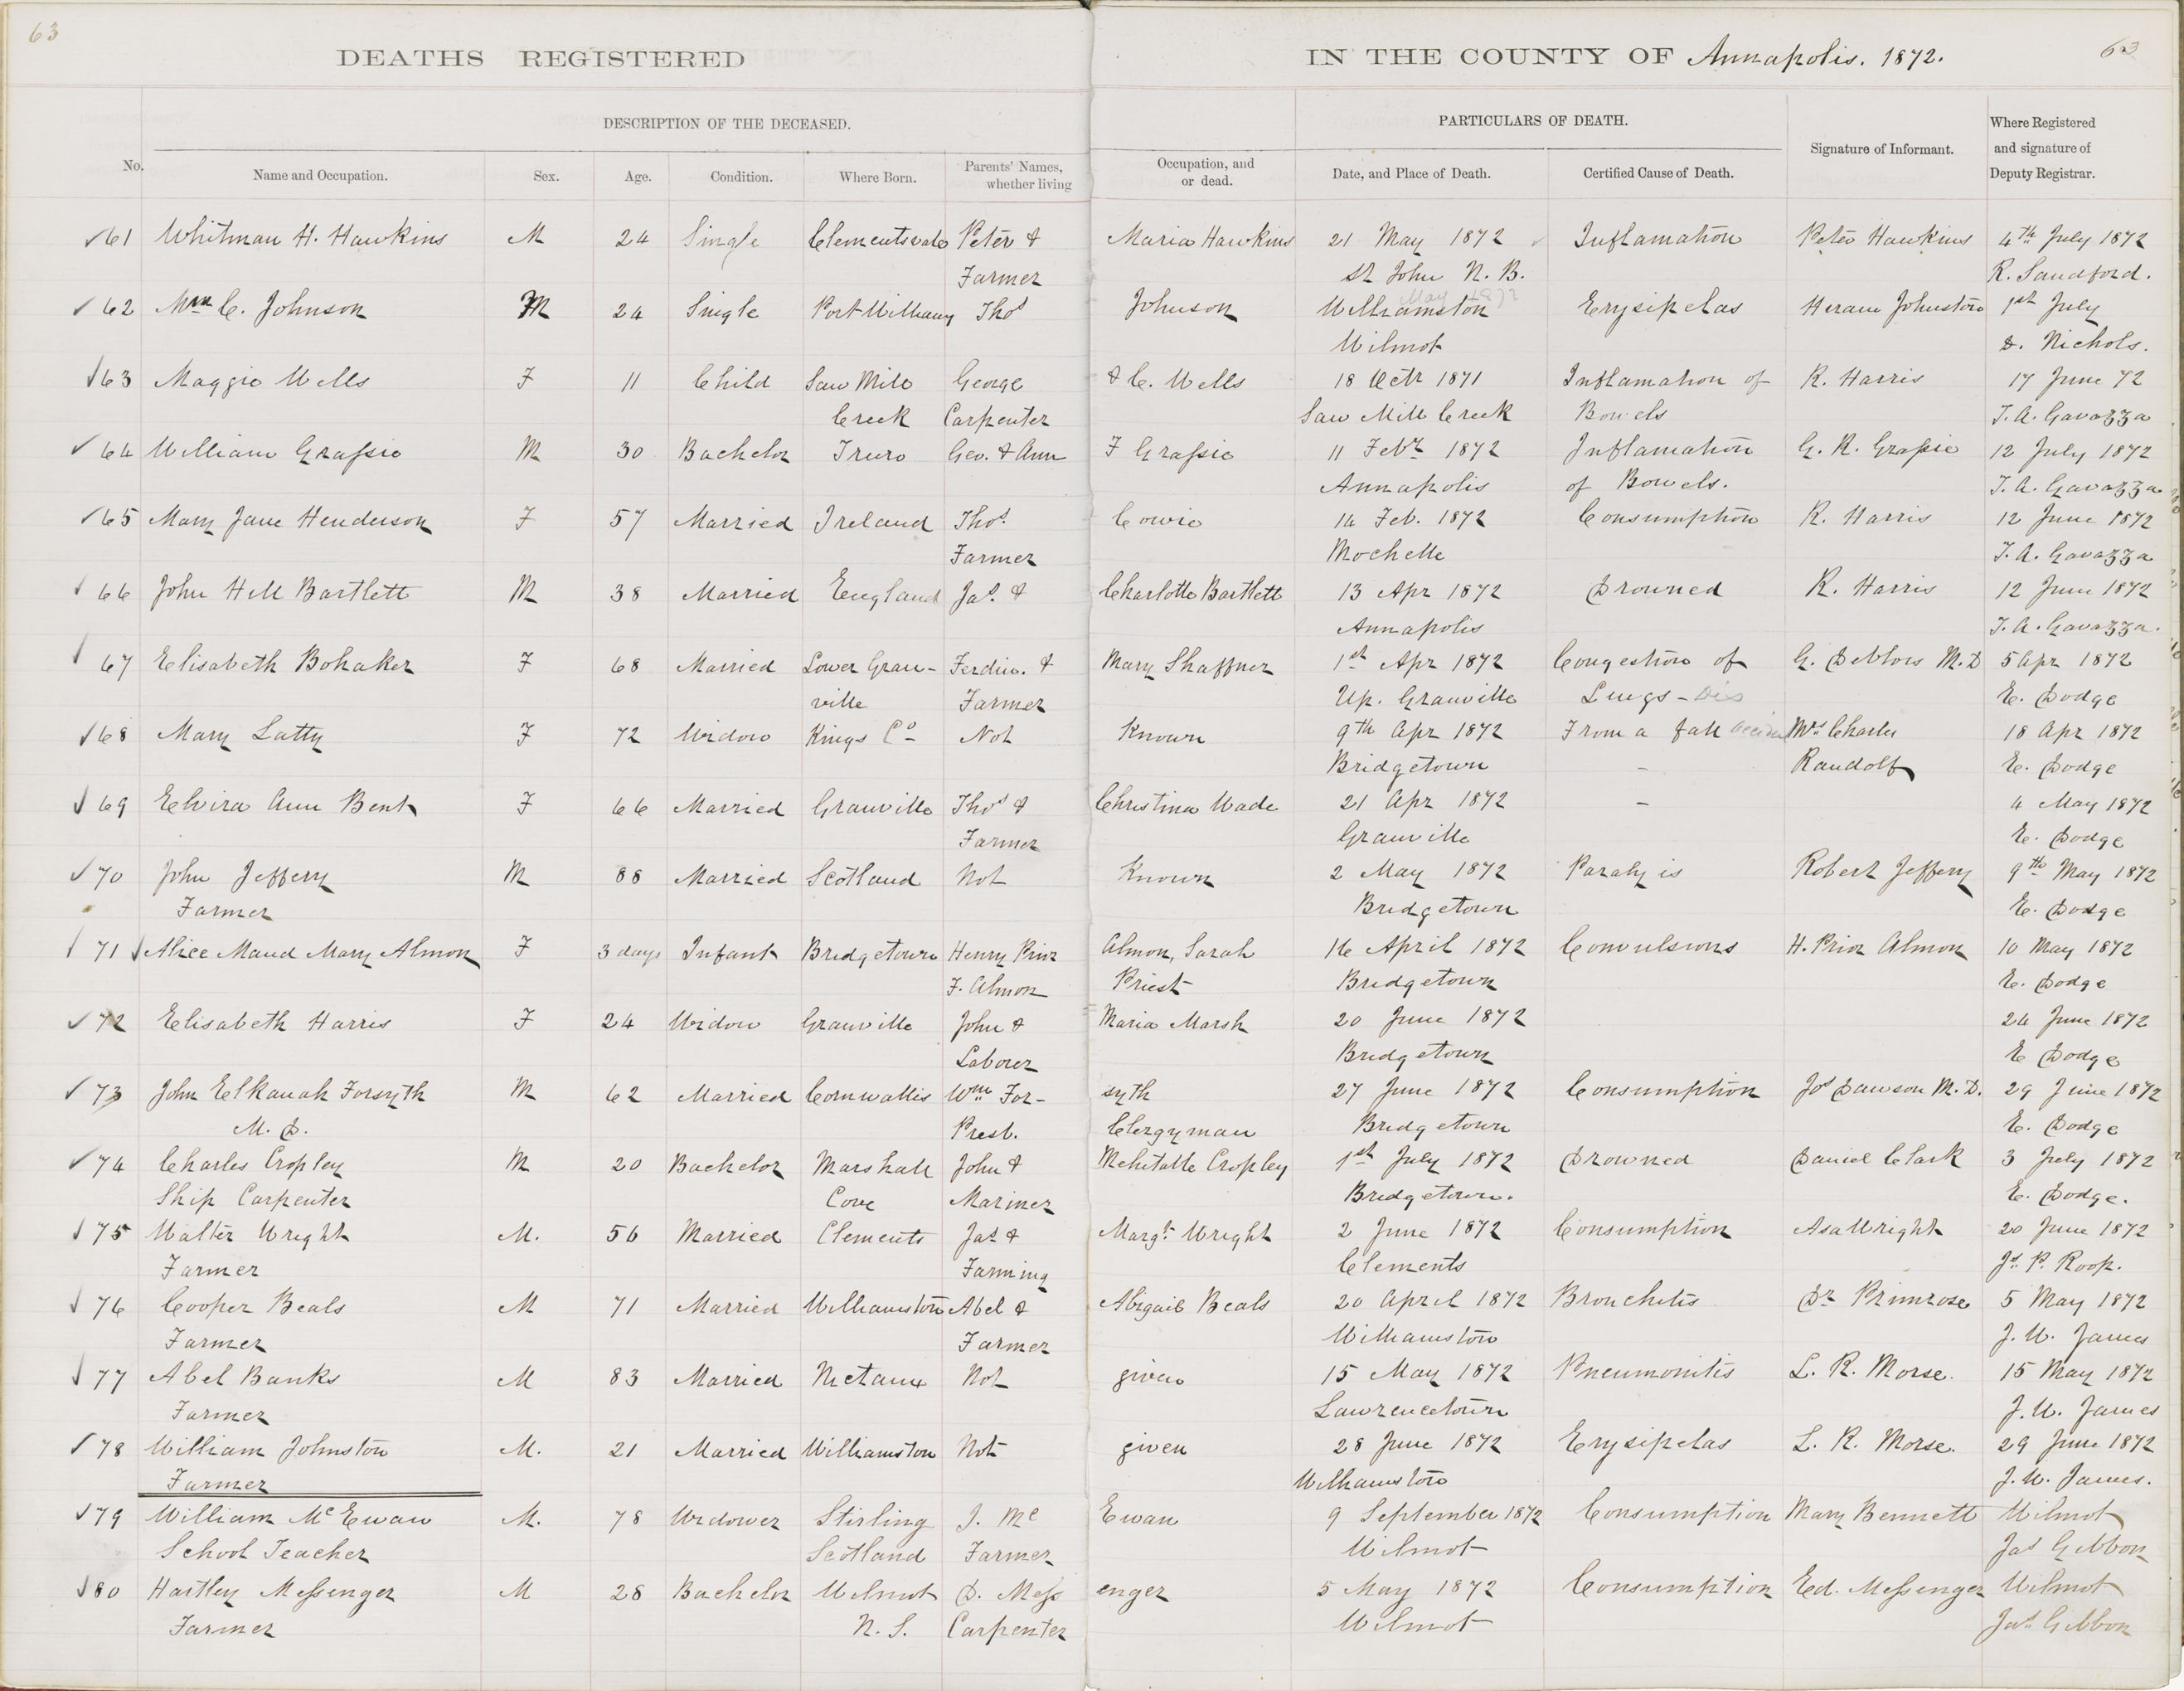 63
DEATHS REGISTERED IN THE COUNTY OF Annapolis. 1872.
63
DESCRIPTION OF THE DECEASED. PARTICULARS OF DEATH. Where Registered and signature of Deputy Registrar.
No. Name and Occupation. Sex. Age. Condition. Where Born. Parents' Names, whether living Occupation, and or dead. Date, and Place of Death. Certified Cause of Death. Signature of Informant.
61 Whitman H. Hawkins M 24 Single Clementsvale Peter & Maria Hawkins 21 May 1872 Inflamation Peter Hawkins 4th July 1872
Farmer St John N. B. R. Sandford.
62 Wm C. Johnson M 24 Single Port Williams Thos Johnson Williamston May 1872 Erysipelas Hiram Johnston 1st July
Wilmot Nichols.
63 Maggie Wells F 11 Child Saw Mill George & C. Wells 18 Octr 1871 Inflamation of R. Harris 17 June 72
Creek Carpenter Saw Mill Creek Bowels T. A. Gavazza
64 William Grassie M 30 Bachelor Truro Geo. & Ann F Grassie 11 Febr 1872 Inflamation G. R. Grassie 12 July 1872
Annapolis of Bowels. T. A. Gavazza
65 Mary Jane Henderson F 57 Married Ireland Thos. Cowie 14 Feb. 1872 Consumption R. Harris 12 June 1872
Farmer Mochelle T. A. Gavazza
66 John Hill Bartlett M 38 Married England Jas. & Charlotte Bartlett 13 Apr 1872 Drowned R. Harris 12 June 1872
Annapolis T. A. Gavazza.
67 Elisabeth Bohaker F 68 Married Lower Gran- Ferdin. & Mary Shaffner 1st Apr 1872 Congestion of G. Deblois M.D 5 Apr 1872
ville Farmer Up. Granville Lungs - Dis E. Dodge
68 Mary Latty F 72 Widow Kings Co Not Known 9th Apr 1872 From a fall Mrs Charles 18 Apr 1872
Bridgetown - Randolf E. Dodge
69 Elvira Ann Bent F 66 Married Granville Thos & Christina Wade 21 Apr 1872 - 4 May 1872
Farmer Granville E. Dodge
70 John Jeffery M 88 Married Scotland Not Known 2 May 1872 Paralyis Robert Jeffery 9th May 1872
Farmer Bridgetown E. Dodge
71 Alice Maud Mary Almon F 3 days Infant Bridgetown Henry Prior Almon, Sarah 16 April 1872 Convulsions H. Prior Almon 10 May 1872
F. Almon Priest Bridgetown E. Dodge
72 Elisabeth Harris F 24 Widow Granville John & Maria Marsh 20 June 1872 24 June 1872
Laborer Bridgetown E Dodge
73 John Elkanah Forsyth M 62 Married Cornwallis Wm For- syth 27 June 1872 Consumption Jos Dawson M. D. 29 June 1872
M. D. Presb. Clergyman Bridgetown E. Dodge
74 Charles Cropley M 20 Bachelor Marshall John & Mehitable Cropley 1st July 1872 Drowned Daniel Clark 3 July 1872
Ship Carpenter Cove Mariner Bridgetown. E. Dodge.
75 Walter Wright M. 56 Married Clements Jas & Margt. Wright 2 June 1872 Consumption Asa Wright 20 June 1872
Farmer Farming Clements Js. P. Roop.
76 Cooper Beals M 71 Married Williamston Abel & Abigail Beals 20 April 1872 Bronchitis Dr Primrose 5 May 1872
Farmer Farmer Williamston J. W. James
77 Abel Banks M 83 Married Nictaux Not given 15 May 1872 Pneumonitis L. R. Morse. 15 May 1872
Farmer Lawrencetown J. W. James
78 William Johnston M. 21 Married Williamston Not given 28 June 1872 Erysipelas L. R. Morse. 29 June 1872
Farmer Williamston J. W. James.
79 William McEwan M. 78 Widower Stirling J. Mc Ewan 9 September 1872 Consumption Mary Bennett Wilmot
School Teacher Scotland Farmer Wilmot Jas Gibbon
80 Hartley Messenger M 28 Bachelor Wilmot D. Mess enger 5 May 1872 Consumption Ed. Messenger Wilmot
Farmer N. S. Carpenter Wilmot Jas Gibbon